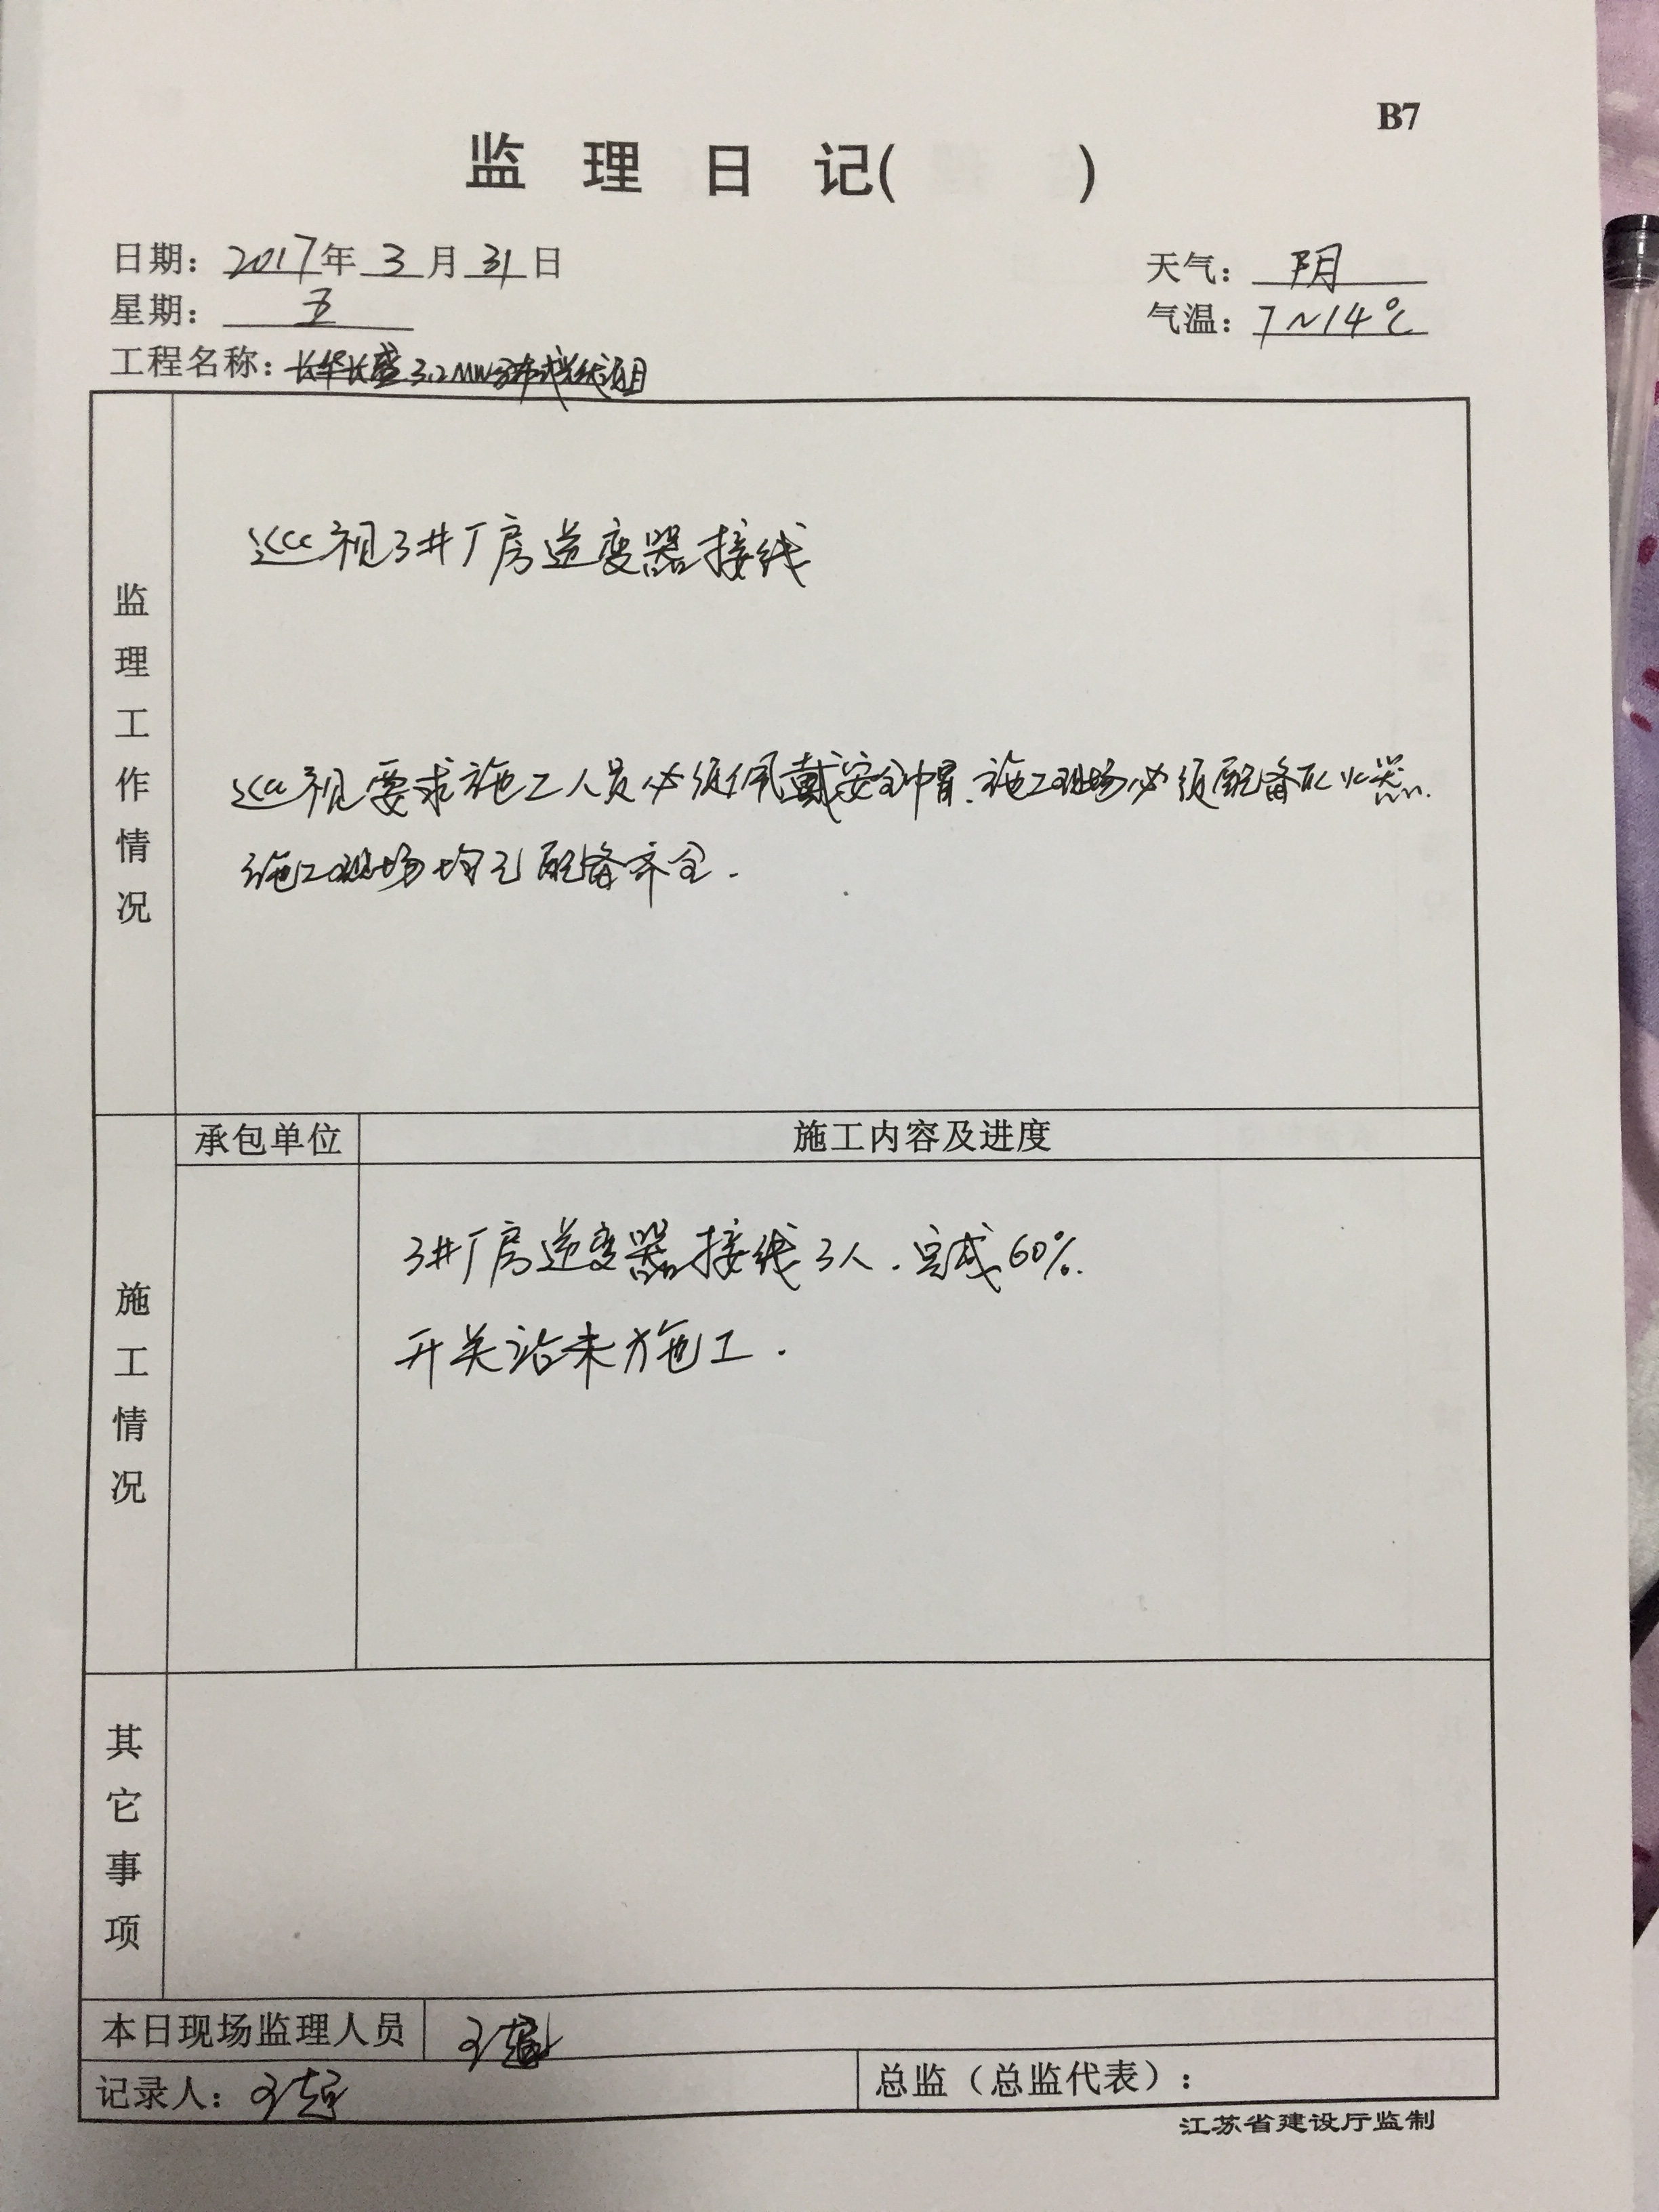 B7
监理日记( )
日期：2017年3月31日
天气：阴
星期：五
气温：7~14℃
工程名称：长华长盛3.2MW分布式光伏项目
监理工作情况
巡视3#厂房逆变器接线
巡视要求施工人员必须佩戴安全帽.施工现场必须配备灭火器.
施工现场均已配备齐全.
施工情况
承包单位
施工内容及进度
3#厂房逆变器接线3人.完成60%.
开关站未施工.
其它事项
本日现场监理人员
记录人：
总监（总监代表）：
江苏省建设厅监制